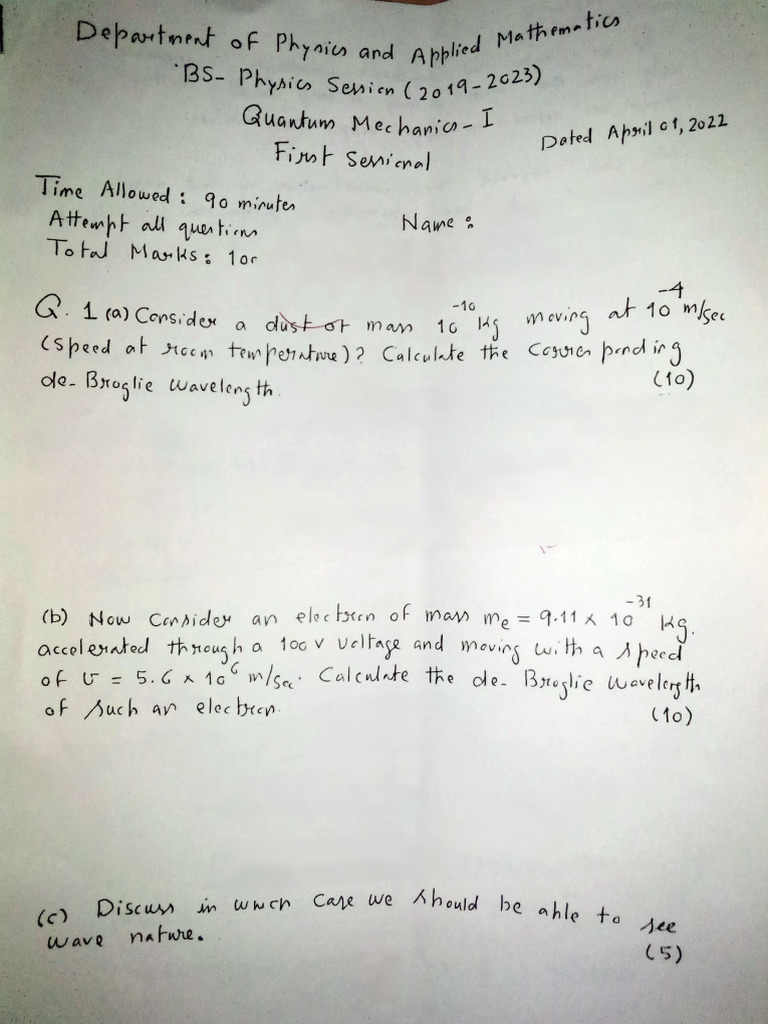 Department of Physics and Applied Mathematics
BS- Physics Session (2019-2023)
Quantum Mechanics-I
Dated April 01, 2022
First Sessional
Time Allowed: 90 minutes
Attempt all questions
Name:
Total Marks: 100
Q. 1 (a) Consider a dust of mass 10⁻¹⁰ kg moving at 10⁻⁴ m/sec
(speed at room temperature)? Calculate the Corresponding
de-Broglie wavelength. (10)
(b) Now Consider an electron of mass mₑ = 9.11 x 10⁻³¹ kg.
accelerated through a 100 v voltage and moving with a speed
of v = 5.6 x 10⁶ m/sec. Calculate the de-Broglie wavelength
of such an electron. (10)
(c) Discuss in which Case we should be able to see
wave nature. (5)